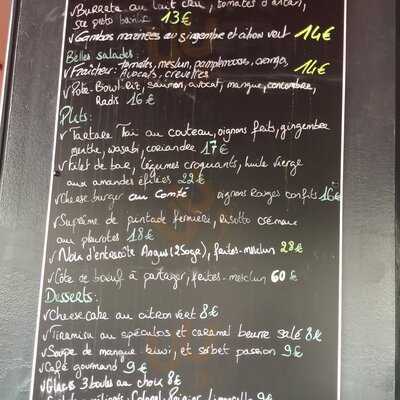 ✓ Burrata au lait cru, tomates d'antan,
pesto basilic 13€
✓ Gambas marinées au gingembre et citron vert 14€
Belles salades:
✓ Fraîcheur: tomates, mesclun, pamplemousse, oranges,
Avocats, crevettes 14€
✓ Poke-Bowl: Riz, saumon, avocat, mangue, concombre,
Radis 16€
Plats:
✓ Tartare Thaï au couteau, oignons frits, gingembre
menthe, wasabi, coriandre 17€
✓ Filet de bar, légumes croquants, huile vierge
aux amandes effilées 22€
✓ Cheese burger au Comté oignons Rouges confits 16€
✓ Suprême de pintade fermière, Risotto crémeux
aux pleurotes 18€
✓ Noix d'entrecôte Angus (250gr), frites-mesclun 28€
✓ Côte de boeuf à partager, frites-mesclun 60€
Desserts:
✓ Cheese cake au citron vert 8€
✓ Tiramisu au spéculos et caramel beurre salé 8€
✓ Soupe de mangue kiwi, et sorbet passion 9€
✓ Café gourmand 9€
✓ Glaces 3 boules au choix 8€